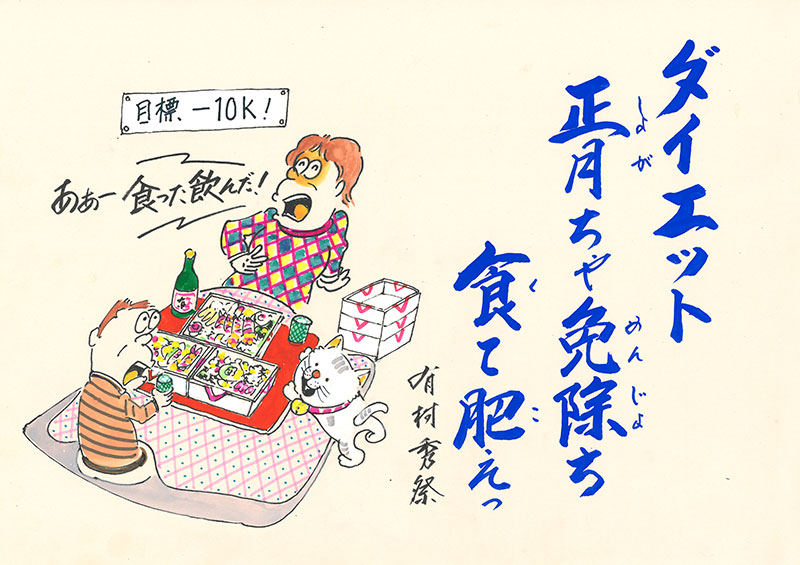 ダイエット
正月ちや免除ち
しよ が めんじよ
食て肥えっ
く こ
有村秀祭
目標、－10K！
あぁー食った飲んだ！